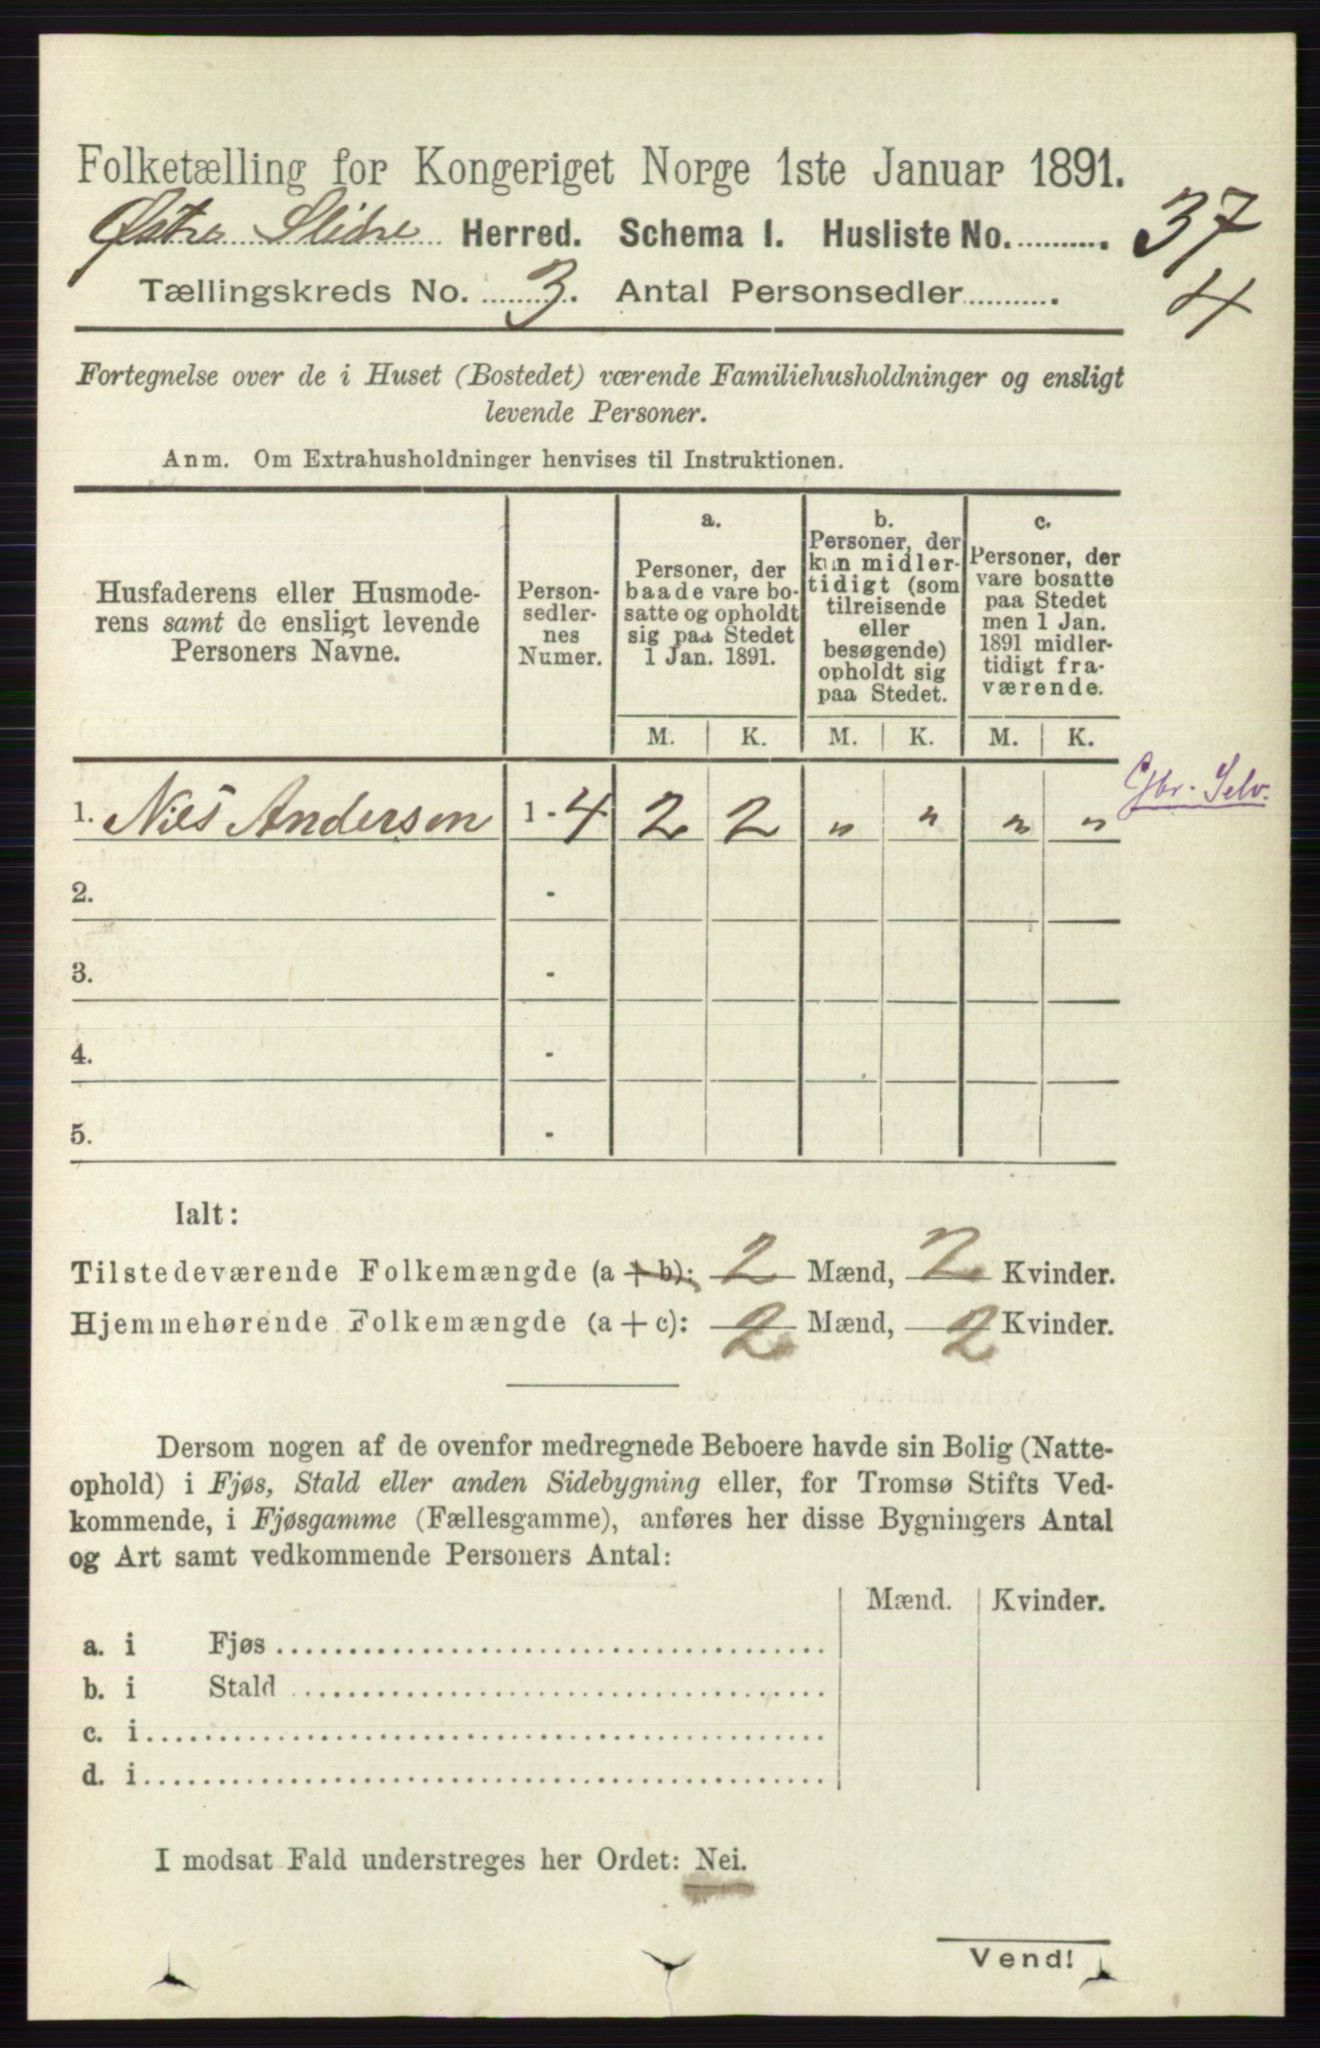 Folketælling for Kongeriget Norge 1ste Januar 1891.
Østre Slidre Herred. Schema I. Husliste No. 37
Tællingskreds No. 3. Antal Personsedler 4
Fortegnelse over de i Huset (Bostedet) værende Familiehusholdninger og ensligt
levende Personer.
Anm. Om Extrahusholdninger henvises til Instruktionen.
Husfaderens eller Husmode-
rens samt de ensligt levende
Personers Navne.
Person-
sedler-
nes
Numer.
a.
Personer, der
baade vare bo-
satte og opholdt
sig paa Stedet
1 Jan. 1891.
b.
Personer, der
kun midler-
tidigt (som
tilreisende
eller
besøgende)
opholdt sig
paa Stedet.
c.
Personer, der
vare bosatte
paa Stedet
men 1 Jan.
1891 midler-
tidigt fra-
værende.
M. K. M. K. M. K.
1. Nils Andersen 1 - 4 2 2 " " " " Gbr. Selv.
2. -
3. -
4. -
5. -
Ialt:
Tilstedeværende Folkemængde (a + b): 2 Mænd, 2 Kvinder.
Hjemmehørende Folkemængde (a + c): 2 Mænd, 2 Kvinder.
Dersom nogen af de ovenfor medregnede Beboere havde sin Bolig (Natte-
ophold) i Fjøs, Stald eller anden Sidebygning eller, for Tromsø Stifts Ved-
kommende, i Fjøsgamme (Fællesgamme), anføres her disse Bygningers Antal
og Art samt vedkommende Personers Antal:
Mænd. Kvinder.
a. i Fjøs
b. i Stald
c. i
d. i
I modsat Fald understreges her Ordet: Nei.
Vend!